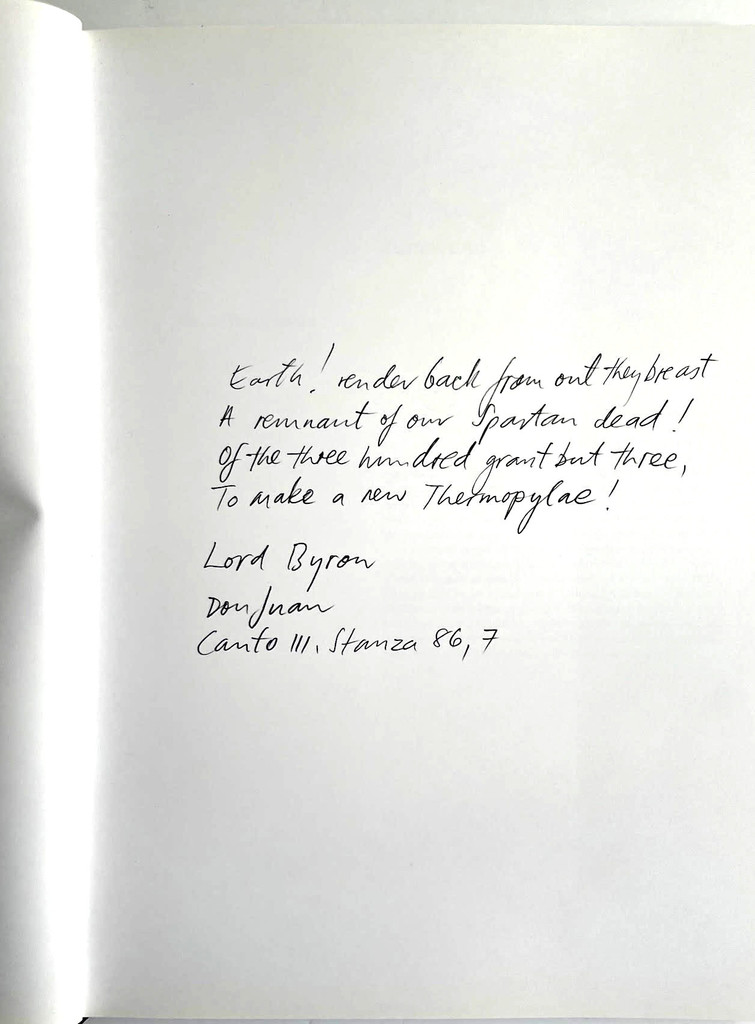 Earth! render back from out they breast
A remnant of our Spartan dead!
Of the three hundred grant but three,
To make a new Thermopylae!
Lord Byron
Don Juan
Canto III. Stanza 86, 7